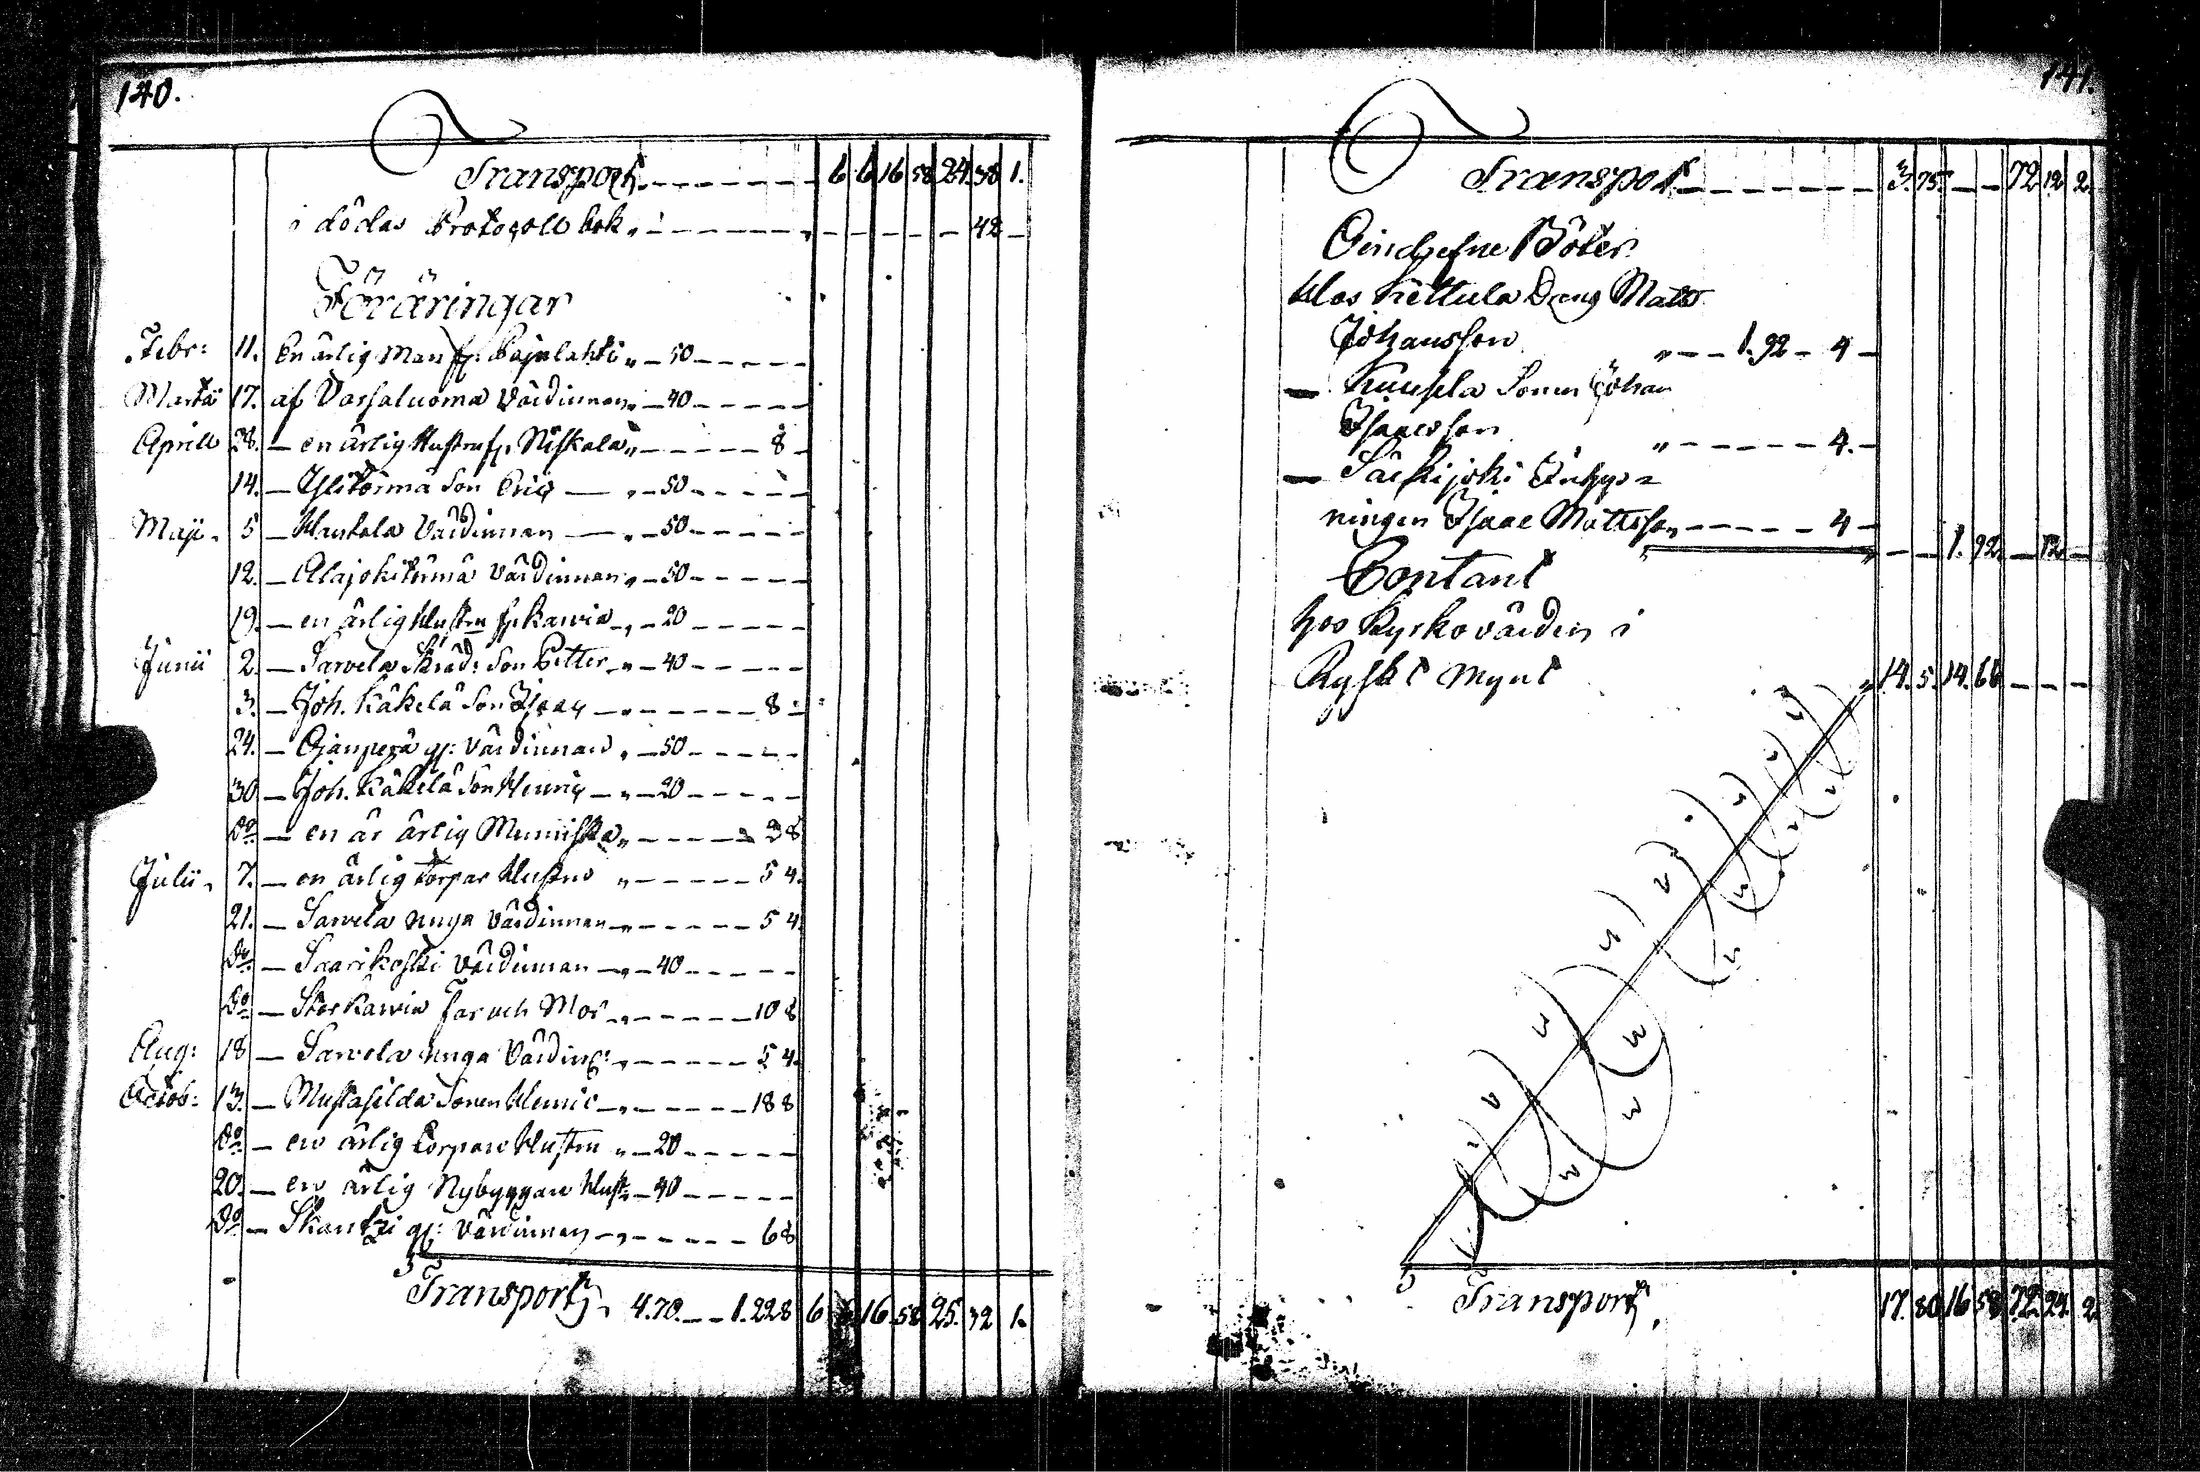 140.
Transport. 6 6 16 58 24 38 1.
i dödas Protocoll bok 42
Föräringar
Febr: 11. En ärlig Man fr. Pajulahti 50
Martii 17. af Vassaluoma Värdinnan 40
Aprill 28. — en ärlig Hustru fr. Niskala 8
14. — Ylitörmä Son Eric — 50
Maji 5 — Hautala Värdinnan — 50
12. — Alajokitörmä Värdinnan 50
19. — en ärlig Hustru fr. Karvia 20
Junii 2 — Sarvela Skräd: Son Petter 40
3. — Joh. Käkelä Son Isaac — 8
24. — Ojanperä gl: Värdinnan 50
30 — Joh. Käkelä Son Henric — 20
Do — en är ärlig Menniska 38
Julii 7. — en ärlig torpar Hustru 5 4
21. — Sarvela unga Värdinnan 5 4
Do — Saarikoski Värdinnan 40
Do — Stor Karvia Far och Mor 10 8
Aug: 18 — Sarvela unga Värdin: 5 4
Octob: 13. — Mustasilda Sonen Henric 18 8
Do — en ärlig Torpare Hustru 20
20. — en ärlig Nybyggare Hust: 40
Do — Skantzi gl: Värdinnan 6 8
Transport, 4.70. — 1.22 8 6 16 58 25. 32 1.
141.
Transport 3. 75. — — 72 12 2.
Oindrefne Böter
Hos Kettula Dräng Matts
Johansson 1.92 — 4 —
— Kuusela Sonen Johan
Isaacsson 4. —
— Särkijoki Inhys=
ningen Isaac Mattsson 4 —
— — 1. 92 — 12 —
Contant
hos Kyrkovärden i
Ryskt Mynt 14. 5. 14. 66 — — —
Transport, 17. 80 16 58 72. 24. 2.